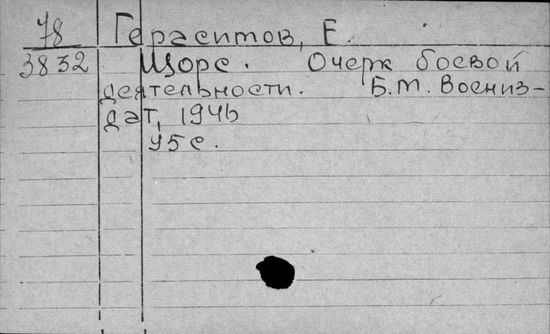 78 Герасимов, Е.
3832 Щорс. Очерк боевой
деятельности. Б.М. Воениз-
дат, 1946
95 с.